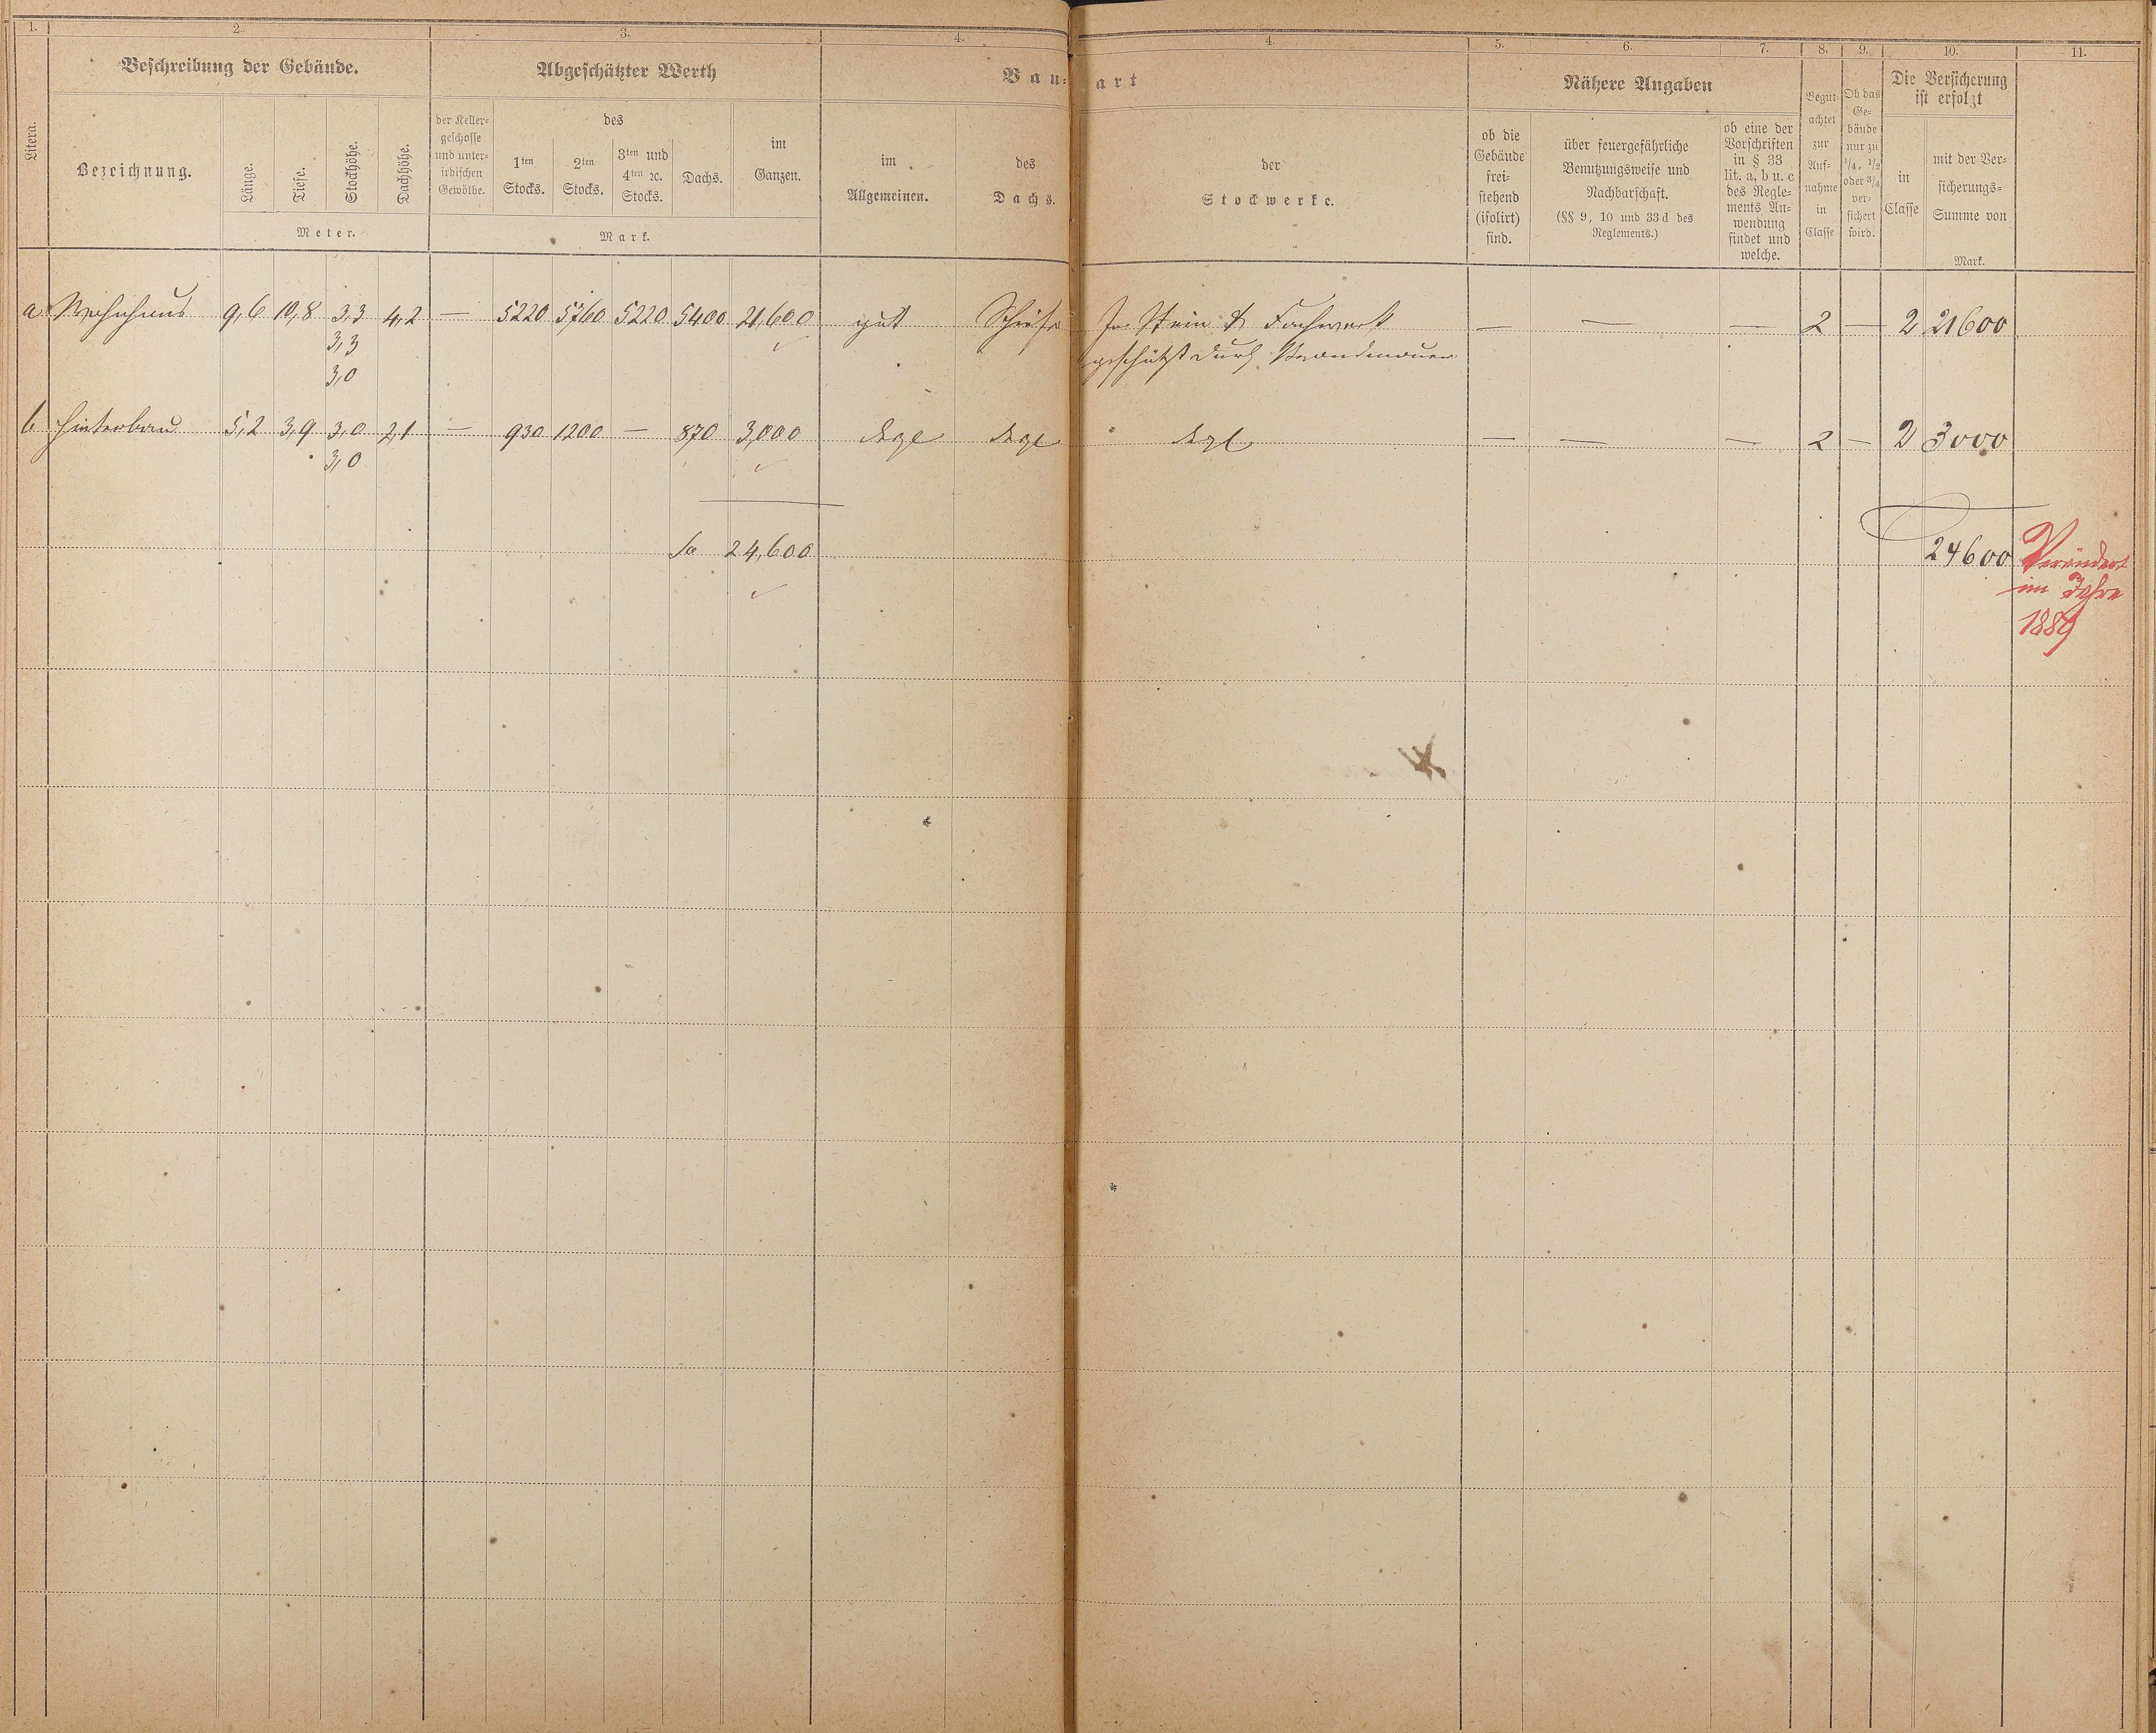 1. 2. 3. 4. 4. 5. 6. 7. 8. 9. 10. 11.
Beschreibung der Gebäude.
Abgeschätzter Werth
Bau-
art
Nähere Angaben
Litera.
Bezeichnung.
Länge.
Tiefe.
Stockhöhe.
Dachhöhe.
Meter.
der Keller-
geschosse
und unter-
irdischen
Gewölbe.
des
1ten
Stocks.
2ten
Stocks.
3ten und
4ten ꝛc.
Stocks.
Dachs.
im
Ganzen.
Mark.
im
Allgemeinen.
des
Dachs.
der
Stockwerke.
ob die
Gebäude
frei-
stehend
(isolirt)
sind.
über feuergefährliche
Benutzungsweise und
Nachbarschaft.
(§§ 9, 10 und 33d des
Reglements.)
ob eine der
Vorschriften
in § 33
lit. a, b u. c
des Regle-
ments An-
wendung
findet und
welche.
Begut-
achtet
zur
Auf-
nahme
in
Classe
Ob das
Ge-
bäude
nur zu
1/4, 1/2
oder 3/4
ver-
sichert
wird.
Die Versicherung
ist erfolgt
in
Classe
mit der Ver-
sicherungs-
Summe von
Mark.
a Wohnhaus 9,6 10,8 3,3 4,2 — 5220 5760 5220 5400 21,600 gut Schiefer In Stein & Fachwerk — — — 2 — 2 21600
3,3 geschützt durch Brandmauer
3,0
b Hinterbau 5,2 3,9 3,0 2,1 — 930 1200 — 870 3,000 dsgl dsgl dsgl — — — 2 — 2 3000
3,0
Sa 24,600
24600
Verändert
im Jahre
1889